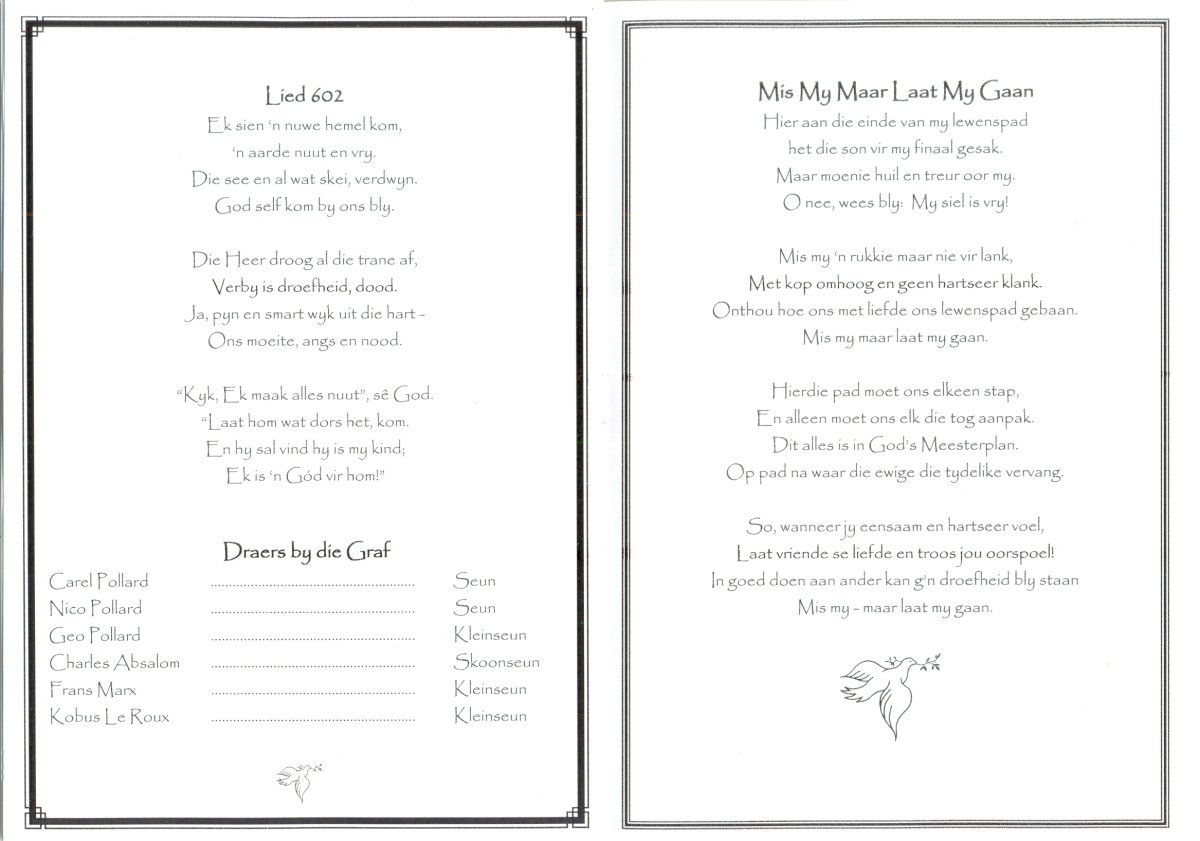 Lied 602
Ek sien ‘n nuwe hemel kom,
‘n aarde nuut en vry.
Die see en al wat skei, verdwyn.
God self kom by ons bly.
Die Heer droog al die trane af,
Verby is droefheid, dood.
Ja, pyn en smart wyk uit die hart –
Ons moeite, angs en nood.
“Kyk, Ek maak alles nuut”, sê God.
“Laat hom wat dors het, kom.
En hy sal vind hy is my kind;
Ek is ‘n Gód vir hom!”
Draers by die Graf
Carel Pollard ................................................ Seun
Nico Pollard ................................................ Seun
Geo Pollard ................................................ Kleinseun
Charles Absalom ................................................ Skoonseun
Frans Marx ................................................ Kleinseun
Kobus Le Roux ................................................ Kleinseun
Mis My Maar Laat My Gaan
Hier aan die einde van my lewenspad
het die son vir my finaal gesak.
Maar moenie huil en treur oor my.
O nee, wees bly:  My siel is vry!
Mis my ‘n rukkie maar nie vir lank,
Met kop omhoog en geen hartseer klank.
Onthou hoe ons met liefde ons lewenspad gebaan.
Mis my maar laat my gaan.
Hierdie pad moet ons elkeen stap,
En alleen moet ons elk die tog aanpak.
Dit alles is in God’s Meesterplan.
Op pad na waar die ewige die tydelike vervang.
So, wanneer jy eensaam en hartseer voel,
Laat vriende se liefde en troos jou oorspoel!
In goed doen aan ander kan g’n droefheid bly staan
Mis my – maar laat my gaan.